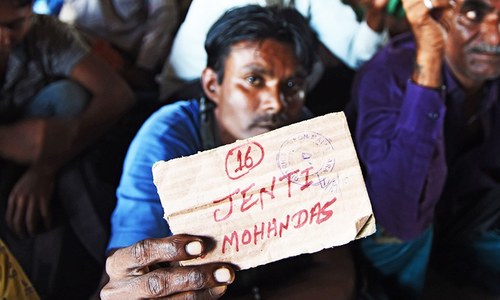 16
JENTI
MOHANDAS